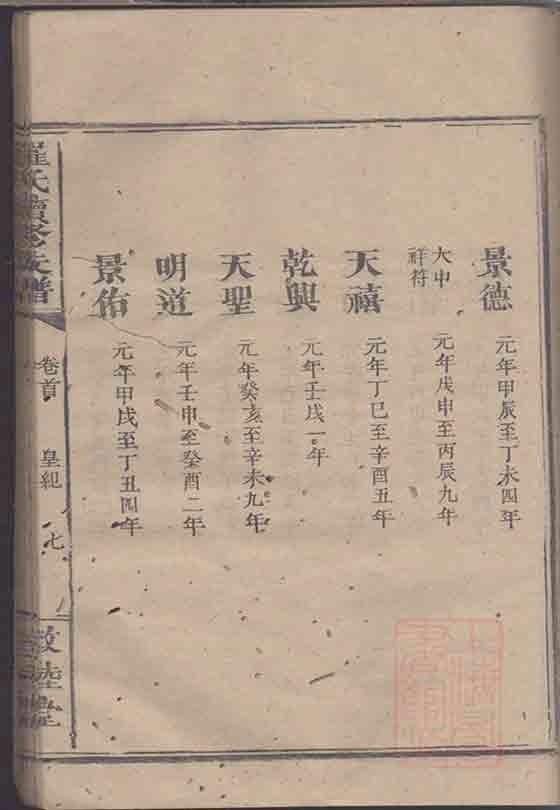 景德 元年甲辰至丁未四年
大中祥符 元年戊申至丙辰九年
天禧 元年丁巳至辛酉五年
乾興 元年壬戌一年
天聖 元年癸亥至辛未九年
明道 元年壬申至癸酉二年
景佑 元年甲戌至丁丑四年
羅氏續修族譜
卷首
皇紀
七
敦睦堂